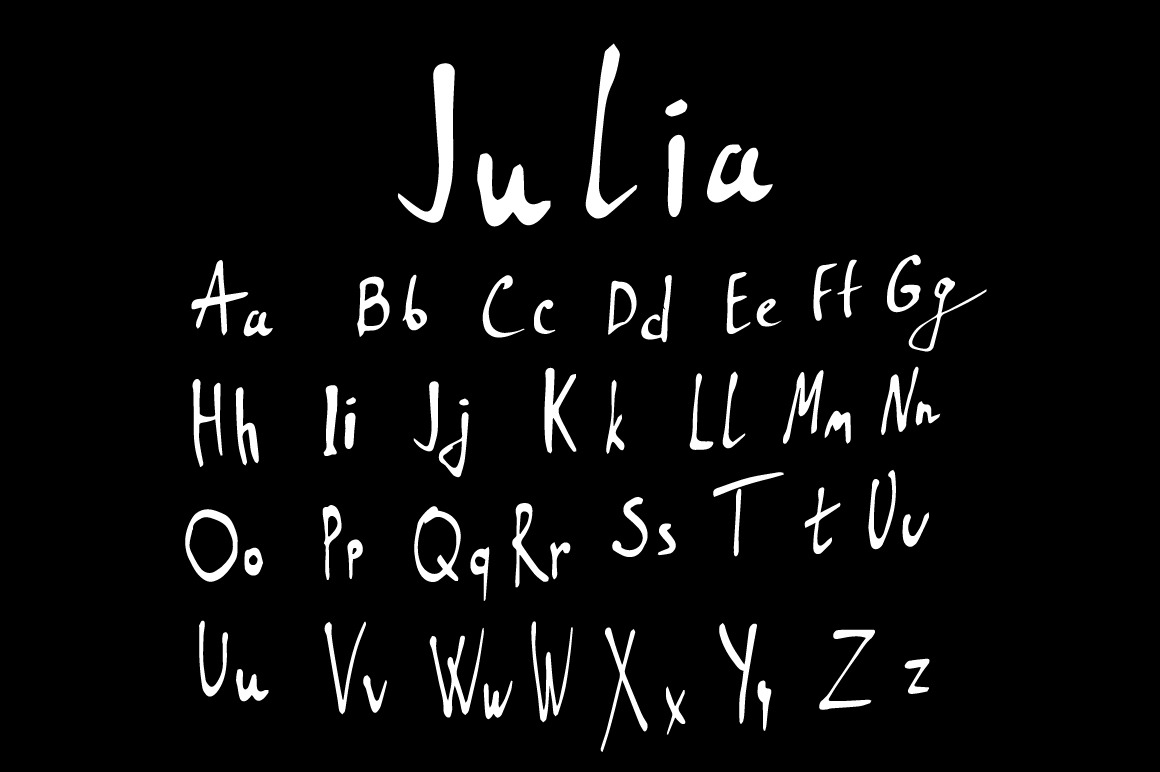 Julia
Aa Bb Cc Dd Ee Ff Gg
Hh Ii Jj Kk Ll Mm Nn
Oo Pp Qq Rr Ss Tt Uv
Uu Vv Ww W Xx Yy Zz